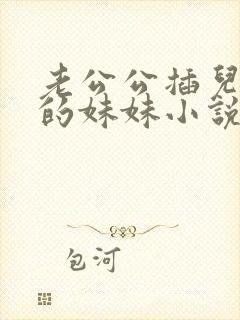 老公公插兒
的妹妹小說
包河